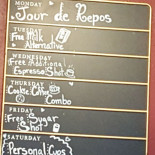 MONDAY
Jour de Repos
TUESDAY
Free Milk
Alternative
WEDNESDAY
Free Additional
Espresso Shot
THURSDAY
Cookie Coffee
Combo
FRIDAY
Free Sugar
Shot
SATURDAY
Personal Cups